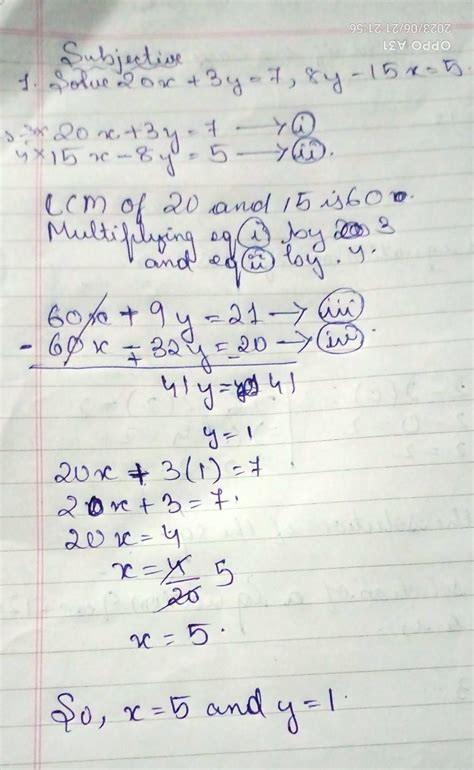 2023/06/21 21:56
OPPO A31
Subjective
1. Solve 20x + 3y = 7, 8y - 15x = 5.
3× 20x + 3y = 7 → (i)
4× 15x - 8y = 5 → (ii).
LCM of 20 and 15 is 60.
Multiplying eq (i) by 3
and eq (ii) by 4.
60x + 9y = 21 → (iii)
- 60x - 32y = 20 → (iv)
+ -
41y = 41
y = 1
20x + 3(1) = 7
20x + 3 = 7.
20x = 4
x = 4/20 5
x = 5.
So, x = 5 and y = 1.